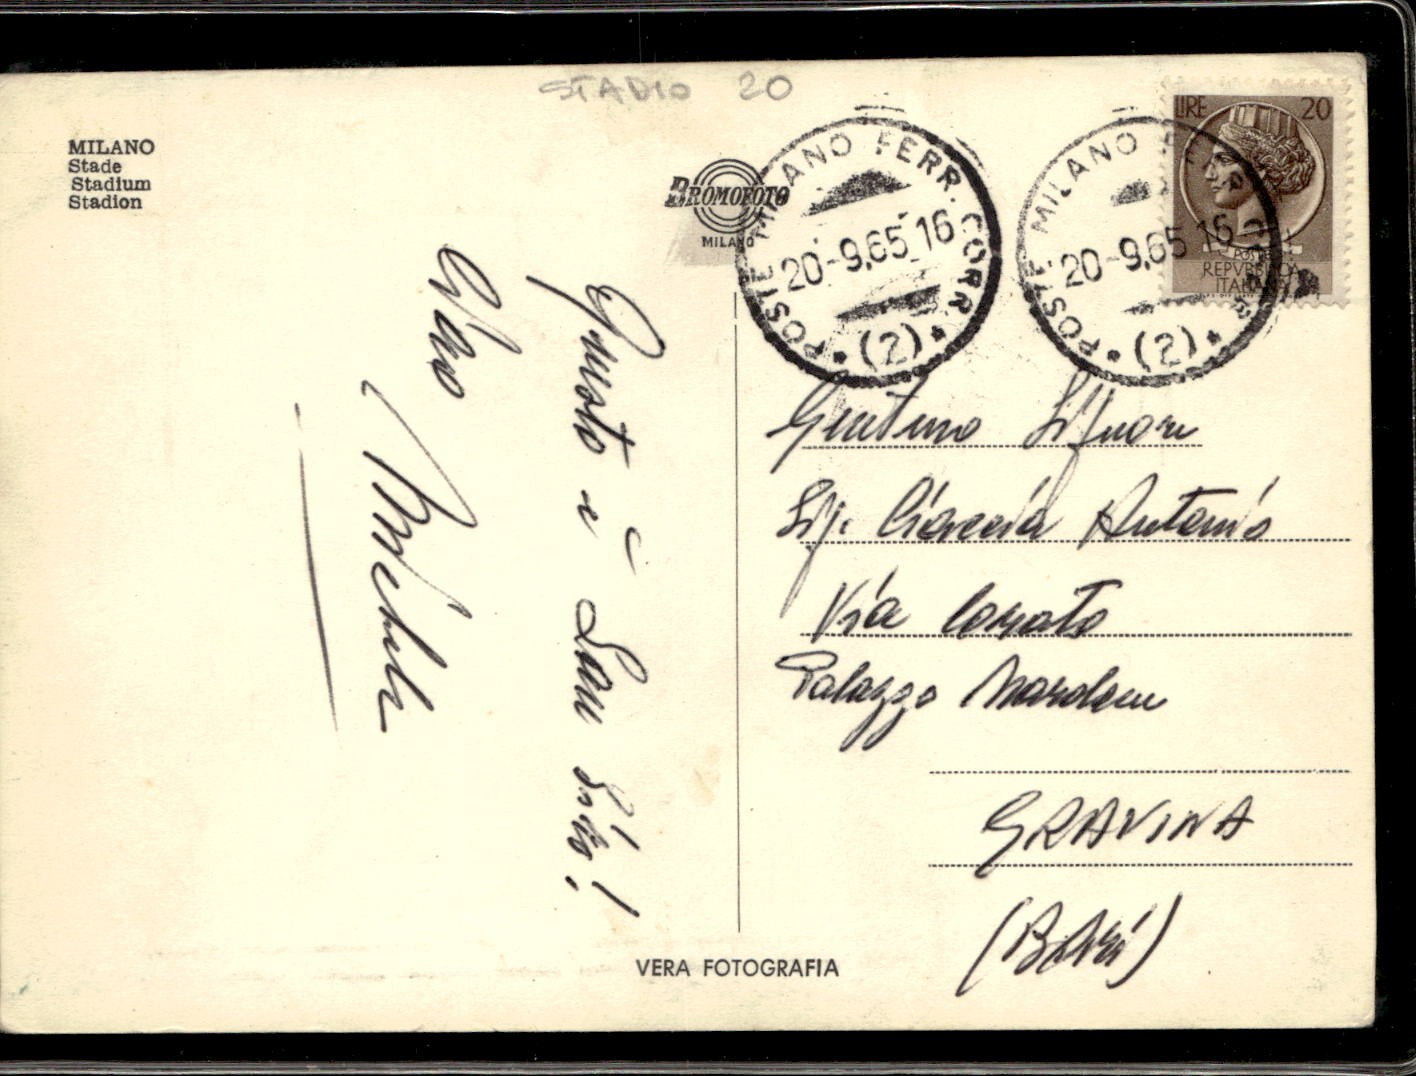 STADIO 20
MILANO
Stade
Stadium
Stadion
BROMOFOTO
MILANO
POSTE MILANO FERR. CORR.
20-9.65 16
* (2) *
POSTE MILANO FERR. CORR.
20-9.65 16
* (2) *
LIRE 20
POSTE
REPVBBLICA
ITALIANA
Questo è San Siro!
Ciao
Gent.mo Signore
Sig. Ciaccia Antonio
Via Corato
Palazzo
GRAVINA
(Bari)
VERA FOTOGRAFIA